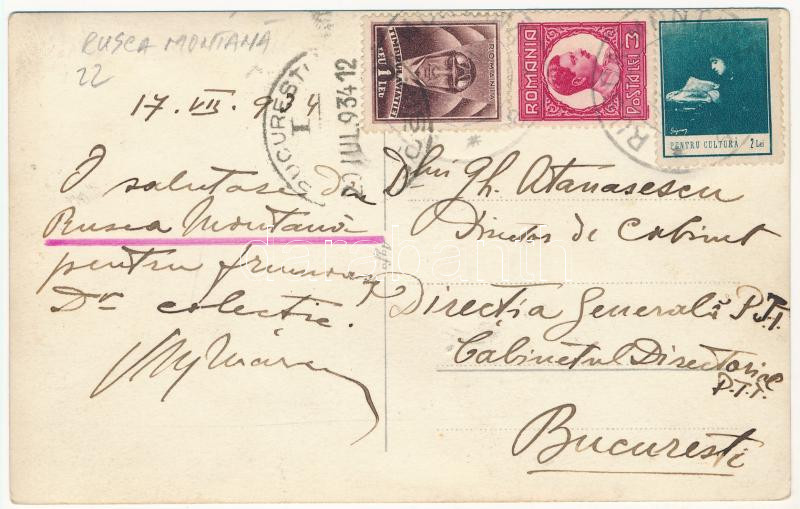 RUSCA MONTANĂ
22
17. VII. 934
BUCUREȘTI
I
20 IUL 934 12
ROMANIA
TIMBRUL AVIATIEI
1 LEU
ROMANIA
POSTA LEI 3
PENTRU CULTURA 2 Lei
O salutare din
Rusca Montană
pentru frumoasa
Dv colecție.
Dlui Gh. Atanasescu
Director de Cabinet
Direcția Generală P.T.T.
Cabinetul Directorial
P.T.T.
București
darabanth